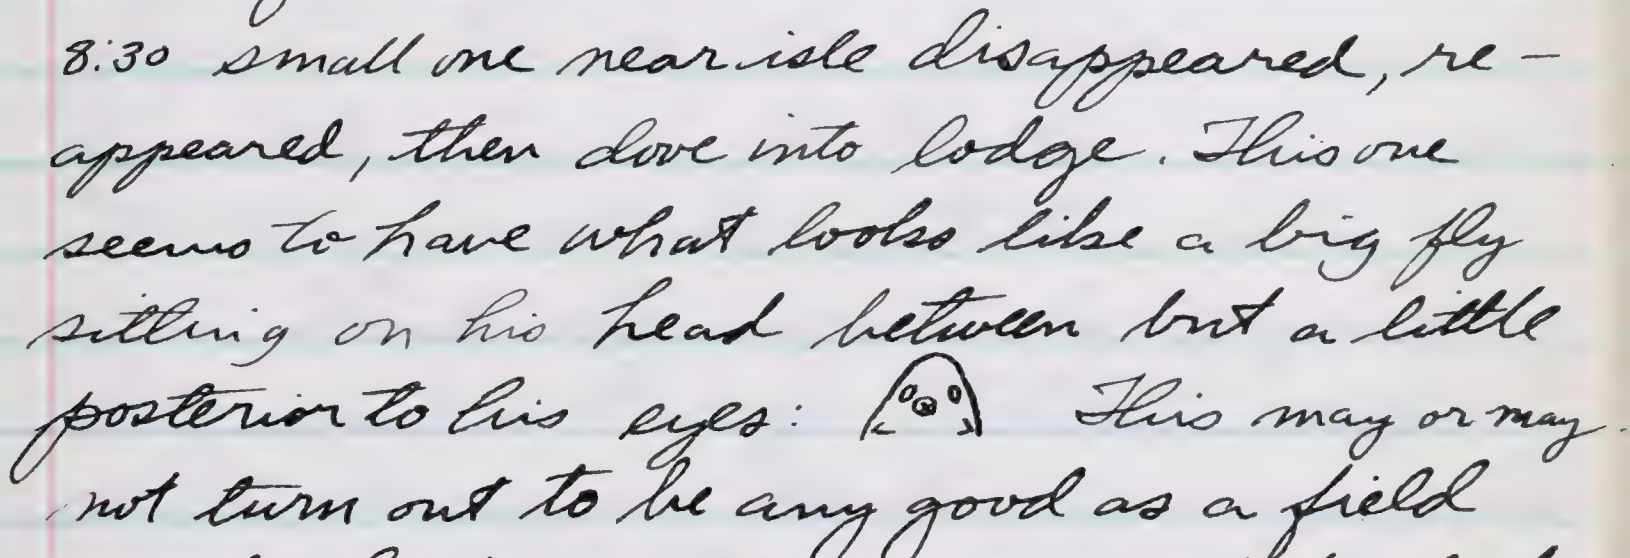 8:30 small one near isle disappeared, re-
appeared, then dove into lodge. This one
seems to have what looks like a big fly
sitting on his head between but a little
posterior to his eyes: This may or may
not turn out to be any good as a field